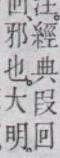 注。經典段回
回、邪也。大明